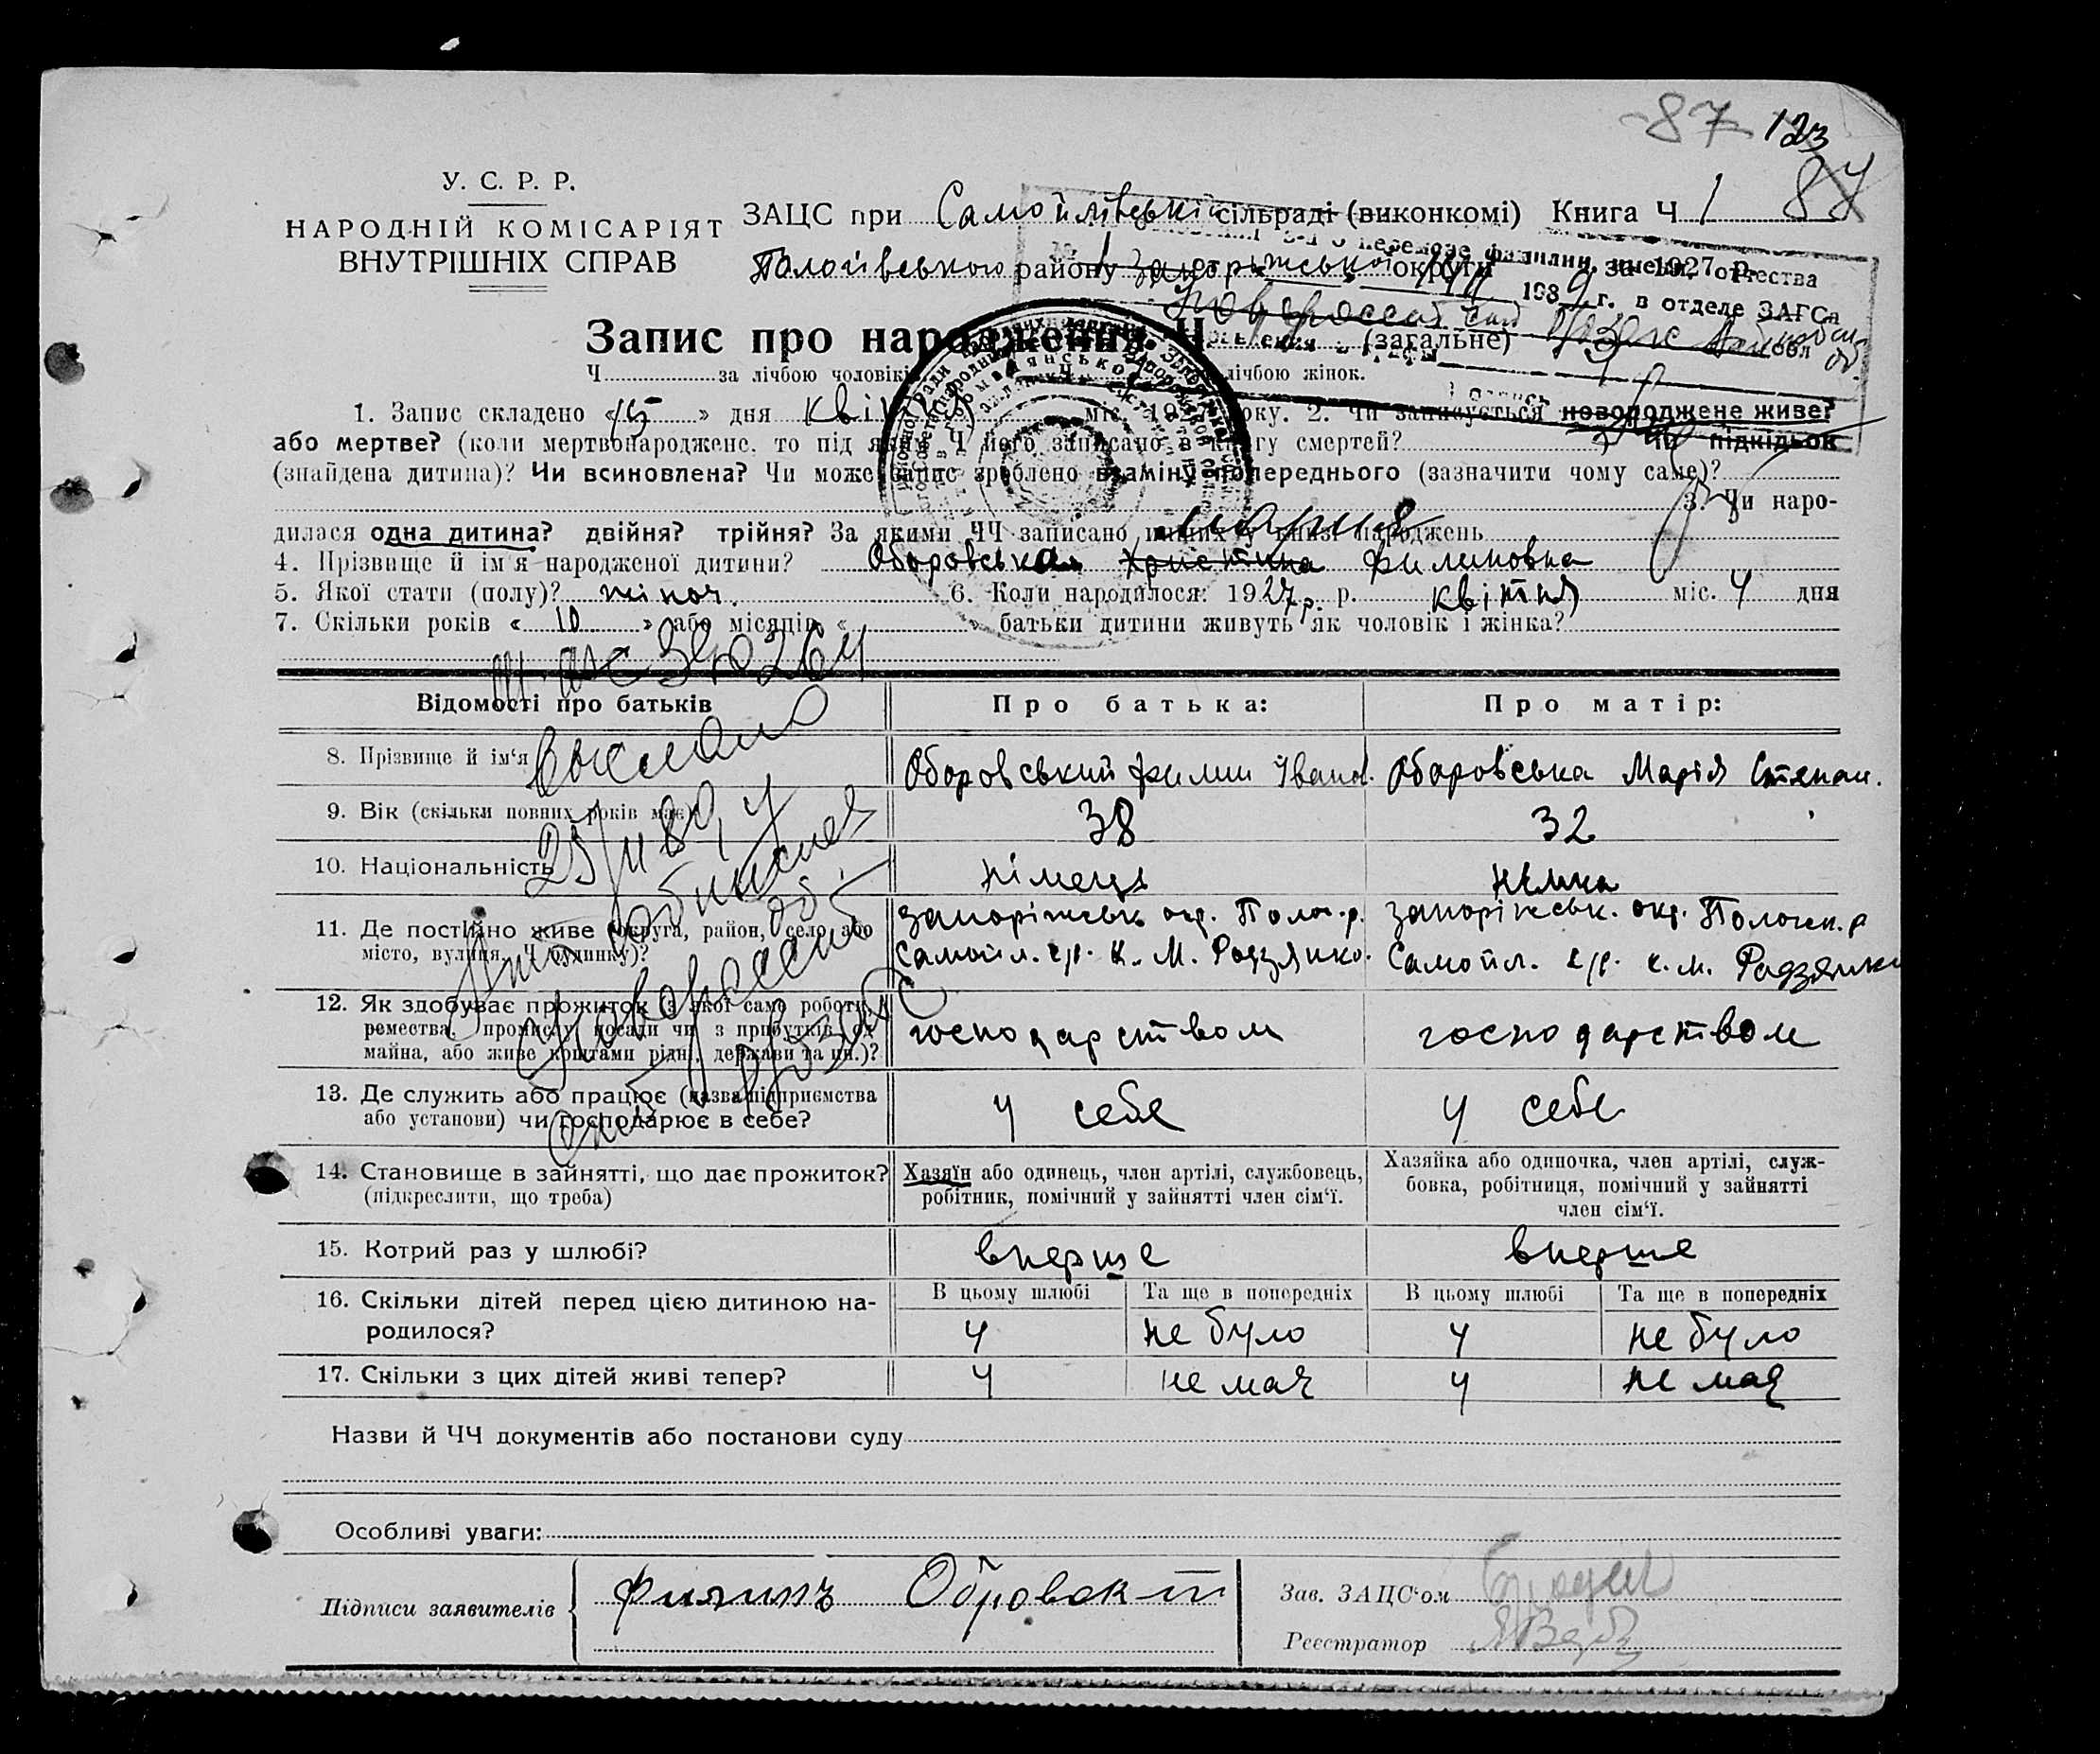 -87 123
У. С. Р. Р.
НАРОДНІЙ КОМІСАРІЯТ
ВНУТРІШНІХ СПРАВ
ЗАЦС при Самойлівській сільраді (виконкомі) Книга Ч 1 87
Пологівського району Запоріжської округи за 1927 р.
о перемене фамилии, имени, отчества
198 9 г. в отделе ЗАГСа
Запис про народження Ч (загальне)
Ч за лічбою чоловіків Ч лічбою жінок.
1. Запис складено «15» дня міс. 192 року. 2. Чи записується новороджене живе?
або мертве? (коли мертвонароджене, то під яким Ч його записано в книгу смертей? Чи підкідьок
(знайдена дитина)? Чи всиновлена? Чи може запис зроблено взаміну попереднього (зазначити чому саме)?
3. Чи наро-
дилася одна дитина? двійня? трійня? За якими ЧЧ записано инших у книзі народжень
Мария
4. Прізвище й ім'я народженої дитини? Оборовська Христина Филиповна
5. Якої стати (полу)? жіноч. 6. Коли народилося: 1927 р. р. квітня міс. 4 дня
7. Скільки років «10» або місяців « » батьки дитини живуть як чоловік і жінка?
Відомості про батьків Про батька: Про матір:
8. Прізвище й ім'я Оборовський Филип Іванов. Оборовська Марія Степан.
выслано
9. Вік (скільки повних років має) 38 32
10. Національність німець німка
11. Де постійно живе (округа, район, село або Запоріжськ окр. Полог. р. Запоріжськ. окр. Пологи. р
місто, вулиця, Ч будинку)? Самойл. с/р. К. М. Родзянко. Самойл. с/р. к. м. Родзянки
12. Як здобуває прожиток (з якої саме роботи, господарством господарством
ремества, промислу, посади чи з прибутків од
майна, або живе коштами рідні, держави та ин.)?
13. Де служить або працює (назва підприємства у себе у себе
або установи) чи господарює в себе?
14. Становище в зайнятті, що дає прожиток? Хазяїн або одинець, член артілі, службовець, Хазяйка або одиночка, член артілі, служ-
(підкреслити, що треба) робітник, помічний у зайнятті член сім'ї. бовка, робітниця, помічний у зайнятті
член сім'ї.
15. Котрий раз у шлюбі? вперше вперше
16. Скільки дітей перед цією дитиною на- В цьому шлюбі Та ще в попередніх В цьому шлюбі Та ще в попередніх
родилося? 4 не було 4 не було
17. Скільки з цих дітей живі тепер? 4 не має 4 не має
Назви й ЧЧ документів або постанови суду
Особливі уваги:
Підписи заявителів Филипъ Обровский Зав. ЗАЦС'ом
Реєстратор